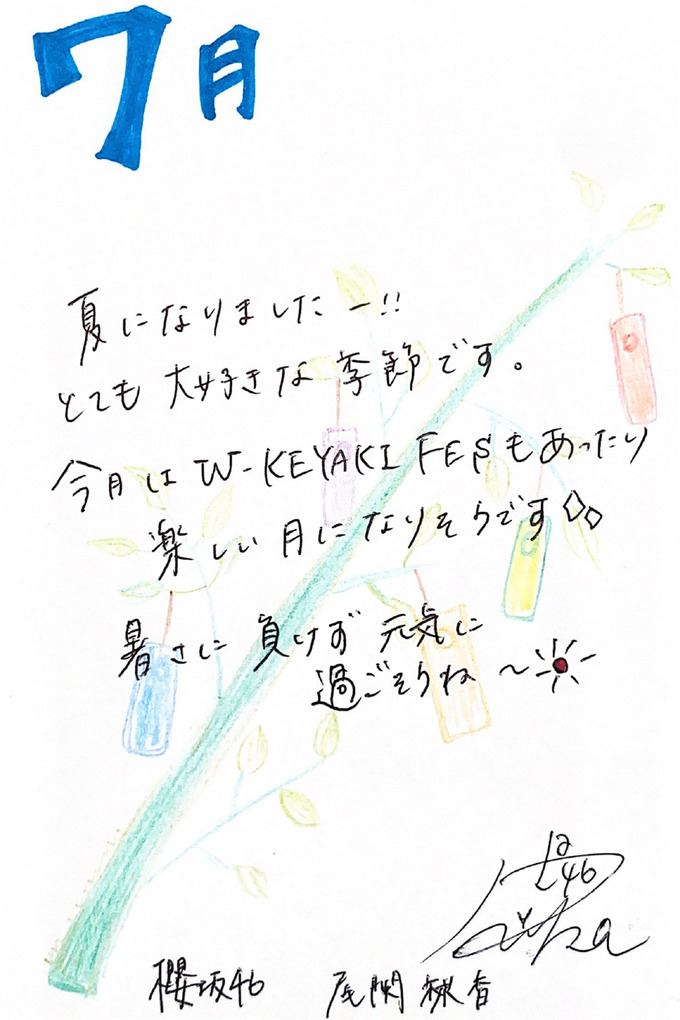 7月
夏になりましたー!!
とても大好きな季節です。
今月はW-KEYAKI FESもあったり
楽しい月になりそうです
暑さに負けず元気に
過ごそうね〜
櫻坂46 尾関梨香